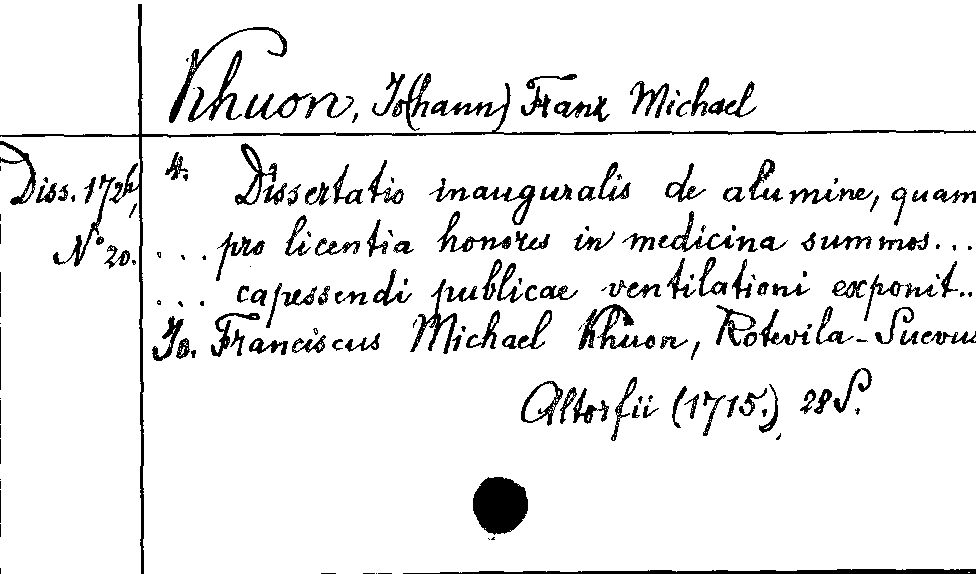 Khuon, Jo(hann) Franz Michael
Diss. 172h,
N° 20.
4. Dissertatio inauguralis de alumine, quam
... pro licentia honores in medicina summos...
... capessendi publicae ventilationi exponit..
Jo. Franciscus Michael Khuon, Rotevila-Suevus
Altorfii (1715.) 28 S.